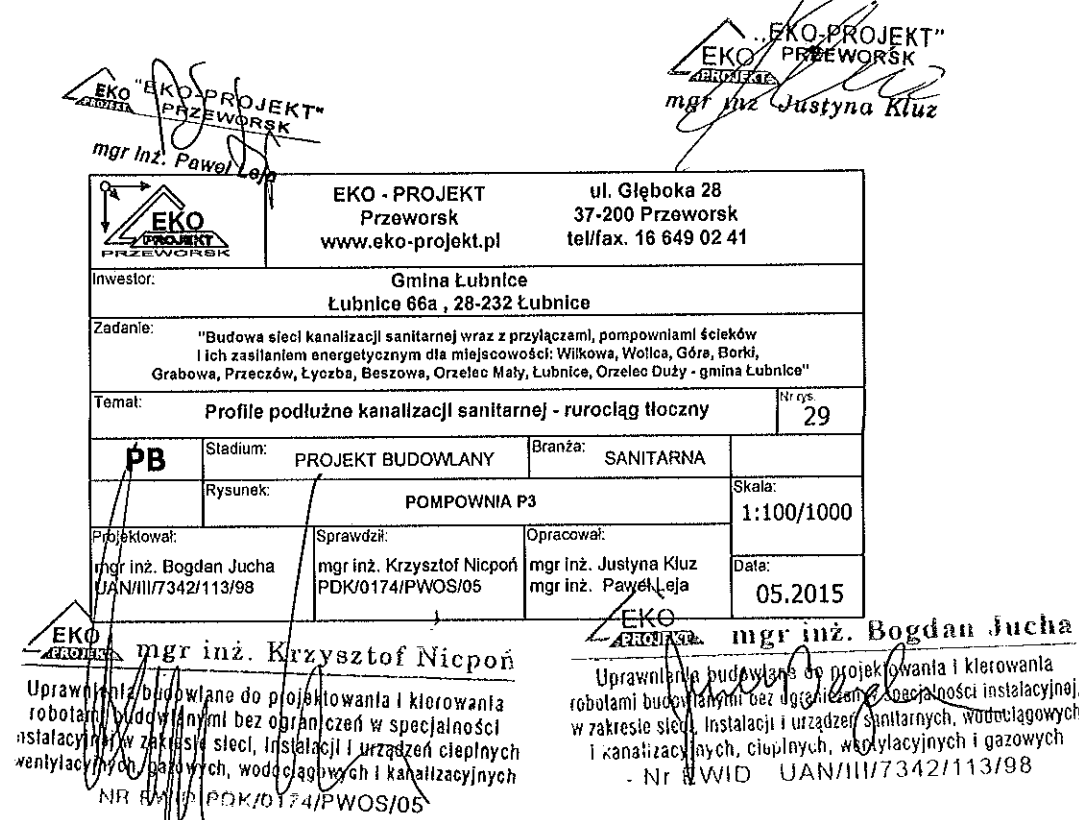 EKO
PROJEKT
"EKO-PROJEKT"
PRZEWORSK
mgr inż. Paweł Leja
EKO
PROJEKT
„EKO-PROJEKT"
PRZEWORSK
mgr inż Justyna Kluz
EKO
PROJEKT
PRZEWORSK
EKO - PROJEKT
Przeworsk
www.eko-projekt.pl
ul. Głęboka 28
37-200 Przeworsk
tel/fax. 16 649 02 41
Inwestor:
Gmina Łubnice
Łubnice 66a , 28-232 Łubnice
Zadanie:
"Budowa sieci kanalizacji sanitarnej wraz z przyłączami, pompowniami ścieków
i ich zasilaniem energetycznym dla miejscowości: Wilkowa, Wolica, Góra, Borki,
Grabowa, Przeczów, Łyczba, Beszowa, Orzelec Mały, Łubnice, Orzelec Duży - gmina Łubnice"
Temat:
Profile podłużne kanalizacji sanitarnej - rurociąg tłoczny
Nr rys.
29
PB
Stadium:
PROJEKT BUDOWLANY
Branża:
SANITARNA
Rysunek:
POMPOWNIA P3
Skala:
1:100/1000
Projektował:
mgr inż. Bogdan Jucha
UAN/III/7342/113/98
Sprawdził:
mgr inż. Krzysztof Nicpoń
PDK/0174/PWOS/05
Opracował:
mgr inż. Justyna Kluz
mgr inż. Paweł Leja
Data:
05.2015
EKO
PROJEKT
mgr inż. Krzysztof Nicpoń
Uprawnienia budowlane do projektowania i kierowania
robotami budowlanymi bez ograniczeń w specjalności
instalacyjnej w zakresie sieci, instalacji i urządzeń cieplnych
wentylacyjnych, gazowych, wodociągowych i kanalizacyjnych
NR EWID PDK/0174/PWOS/05
EKO
PROJEKT
mgr inż. Bogdan Jucha
Uprawnienia budowlane do projektowania i kierowania
robotami budowlanymi bez ograniczeń w specjalności instalacyjnej,
w zakresie sieci, instalacji i urządzeń sanitarnych, wodociągowych
i kanalizacyjnych, cieplnych, wentylacyjnych i gazowych
- Nr EWID UAN/III/7342/113/98